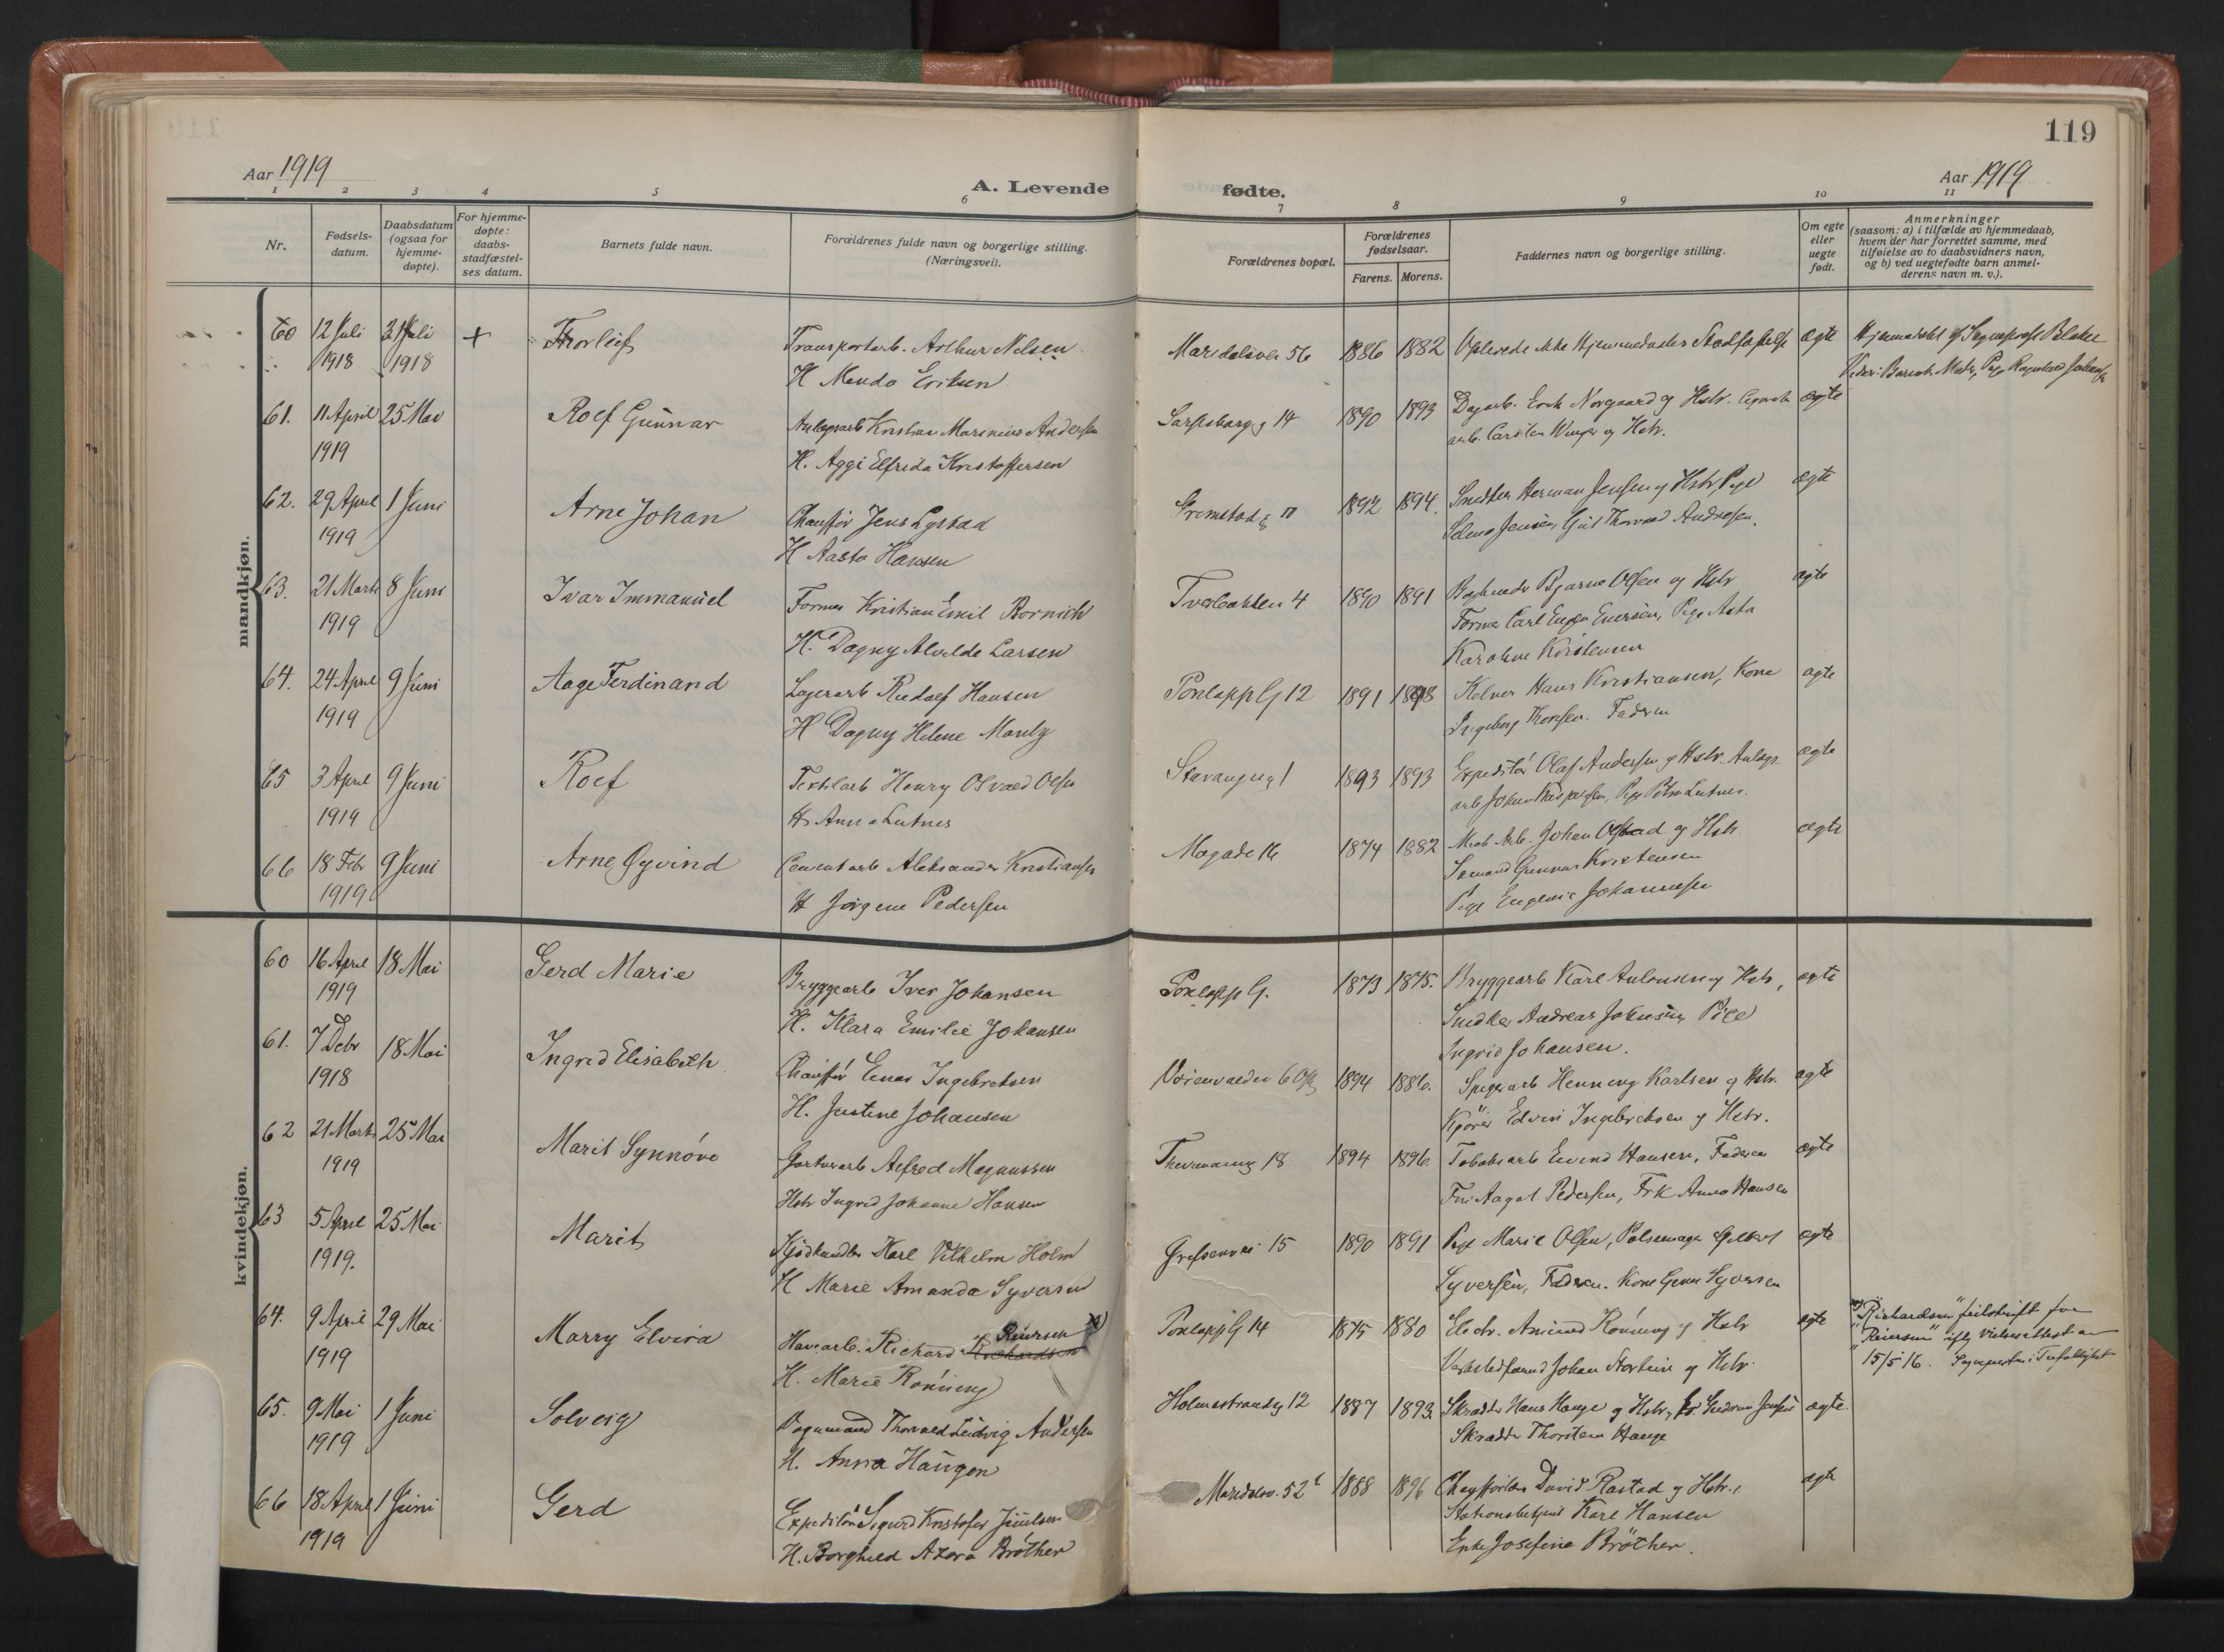 119
Aar 1919
A. Levende fødte.
Aar 1919
1 2 3 4 5 6 7 8 9 10 11
Nr.
Fødsels-
datum.
Daabsdatum
(ogsaa for
hjemme-
døpte).
For hjemme-
døpte:
daabs-
stadfæstel-
ses datum.
Barnets fulde navn.
Forældrenes fulde navn og borgerlige stilling.
(Næringsvei).
Forældrenes bopæl.
Forældrenes
fødselsaar.
Farens. Morens.
Faddernes navn og borgerlige stilling.
Om egte
eller
uegte
født.
Anmerkninger
(saasom: a) i tilfælde av hjemmedaab,
hvem der har forrettet samme, med
tilføielse av to daabsvidners navn,
og b) ved uegtefødte barn anmel-
derens navn m. v.).
mandkjøn.
60 12 Juli 31 Juli + Thorleif Transportarb. Arthur Nilsen Maridalsvei 56 1886 1882 Oplevede ikke Hjemmedaabens Stadfæstelse ægte
1918 1918 H Eriksen
61. 11 April 25 Mai Rolf Gunnar Anlægsarb Kristian Marinius Andersen Sarpsborgg 14 1890 1893 Dagarb. Erik Norgaard og Hstr. ægte
1919 H. Aggi Elfrida Kristoffersen arb. Carsten og Hstr.
62. 29 April 1 Juni Arne Johan Chauffør Jens Lystad Grimstadg 17 1892 1894. Snedker Herman Jensen og Hstr, Pige ægte
1919 H Aasta Hansen Selma Jensen, Thorvald Andresen.
63. 21 Marts 8 Juni Ivar Immanuel Former Kristian Emil Bornich Tverbakken 4 1890 1891 Bjarne Olsen og Hstr ægte
1919 H. Dagny Alvilde Larsen Former Carl Eugen Evensen, Pige Asta
Karoline Kristensen
64. 24 April 9 Juni Aage Ferdinand Lagerarb Rudolf Hansen Bonlokk G 12 1891 1898 Kelner Hans Kristiansen, Kone ægte
1919 H Dagny Helene Ingeborg Thoresen. Faderen
65 3 April 9 Juni Rolf Textilarb Henry Osvald Olsen Stavangerg 1 1893 1893 Expeditør Olaf Andersen og Hstr. Anlægs ægte
1919 H Anna Lutnes arb Johan Pige Lutnes.
66 18 Febr 9 Juni Arne Øyvind Cementarb Aleksander Kristiansen Mogade 16 1874 1882 Arb. Johan Olstad og Hstr. ægte
1919 H Jørgine Pedersen Sømand Gunnar Kristensen
Pige Eugenie Johannesen
kvindekjøn.
60 16 April 18 Mai Gerd Marie Bryggearb Iver Johansen 1873 1875. Bryggearb Karl Antonsen og Hstr, ægte
1919 H. Klara Emilie Johansen Snedker Andreas Johansen, Pige
Ingrid Johansen.
61. 7 Debr 18 Mai Ingrid Elisabeth Chauffør Einar Ingebretsen 1894 1886. Spigerarb Henning Karlsen og Hstr. ægte
1918 H. Justine Johansen Kjører Edvin Ingebretsen og Hstr.
62 21 Marts 25 Mai Marit Synnöve Alfred Magnussen 18 1894 1896. Tobaksarb Eivind Hansen, Faderen ægte
1919 Hstr Ingrid Johanne Hansen Fru Aagot Pedersen, Frk Anna Hansen
63 5 April 25 Mai Marit Kjødhandler Karl Vilhelm Holm Grefsenvei 15 1890 1891 Pige Marie Olsen, Pølsemager ægte
1919. H Marie Amanda Syversen Syversen, Faderen. Kone Syversen
64. 9 April 29 Mai Marry Elvira Havearb. Richard Richardsen Reiersen x) 14 1875 1880 Electr. Amund Rönning og Hstr ægte x) "Richardsen" feilskrift for
1919 H. Marie Rønning Verkstedformd Johan og Hstr. "Reiersen" iflg vielsesattest av
15/5 16.
65. 9 Mai 1 Juni Solveig Vognmand Thorvald Ludvig Andersen Holmestrandg 12 1887 1893. Skrædder Hans Hauge og Hstr, ægte
1919 H. Anna Haugen Skrædder Thorstein Hauge
66 18 April 1 Juni Gerd Expeditør Sigurd Kristofer Juulsen Maridalsv. 52 1888 1896 David Rastad og Hstr., ægte
1919 H. Borghild Azora Bröther Stationsbetjent Karl Hansen
Enke Josefine Bröther.